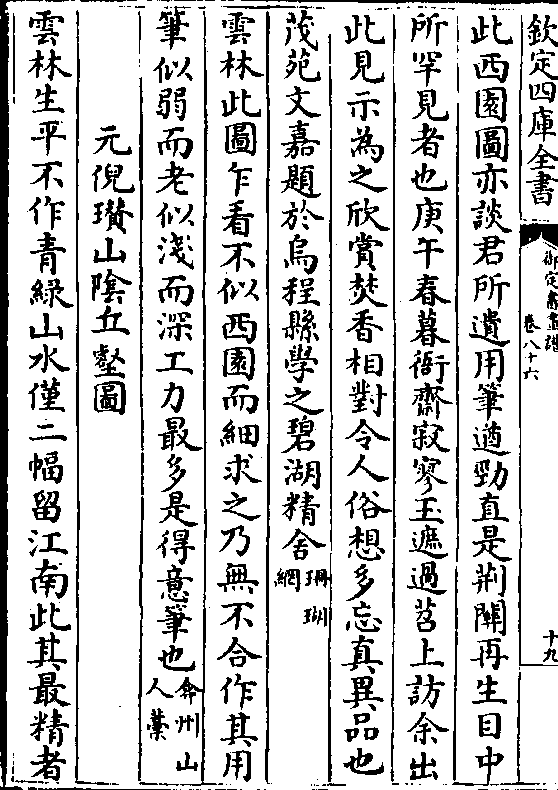 欽定四庫全書
御定書畫譜
卷八十六
十九
此西園圖亦談君所遺用筆遒勁直是荆關再生目中
所罕見者也庚午春暮衙齋寂寥玉遮過苕上訪余出
此見示為之欣賞焚香相對令人俗想多忘真異品也
茂苑文嘉題於烏程縣學之碧湖精舍珊瑚網
雲林此圖乍看不似西園而細求之乃無不合作其用
筆似弱而老似淺而深工力最多是得意筆也弇州山人藁
元倪瓚山陰丘壑圖
雲林生平不作青綠山水僅二幅留江南此其最精者